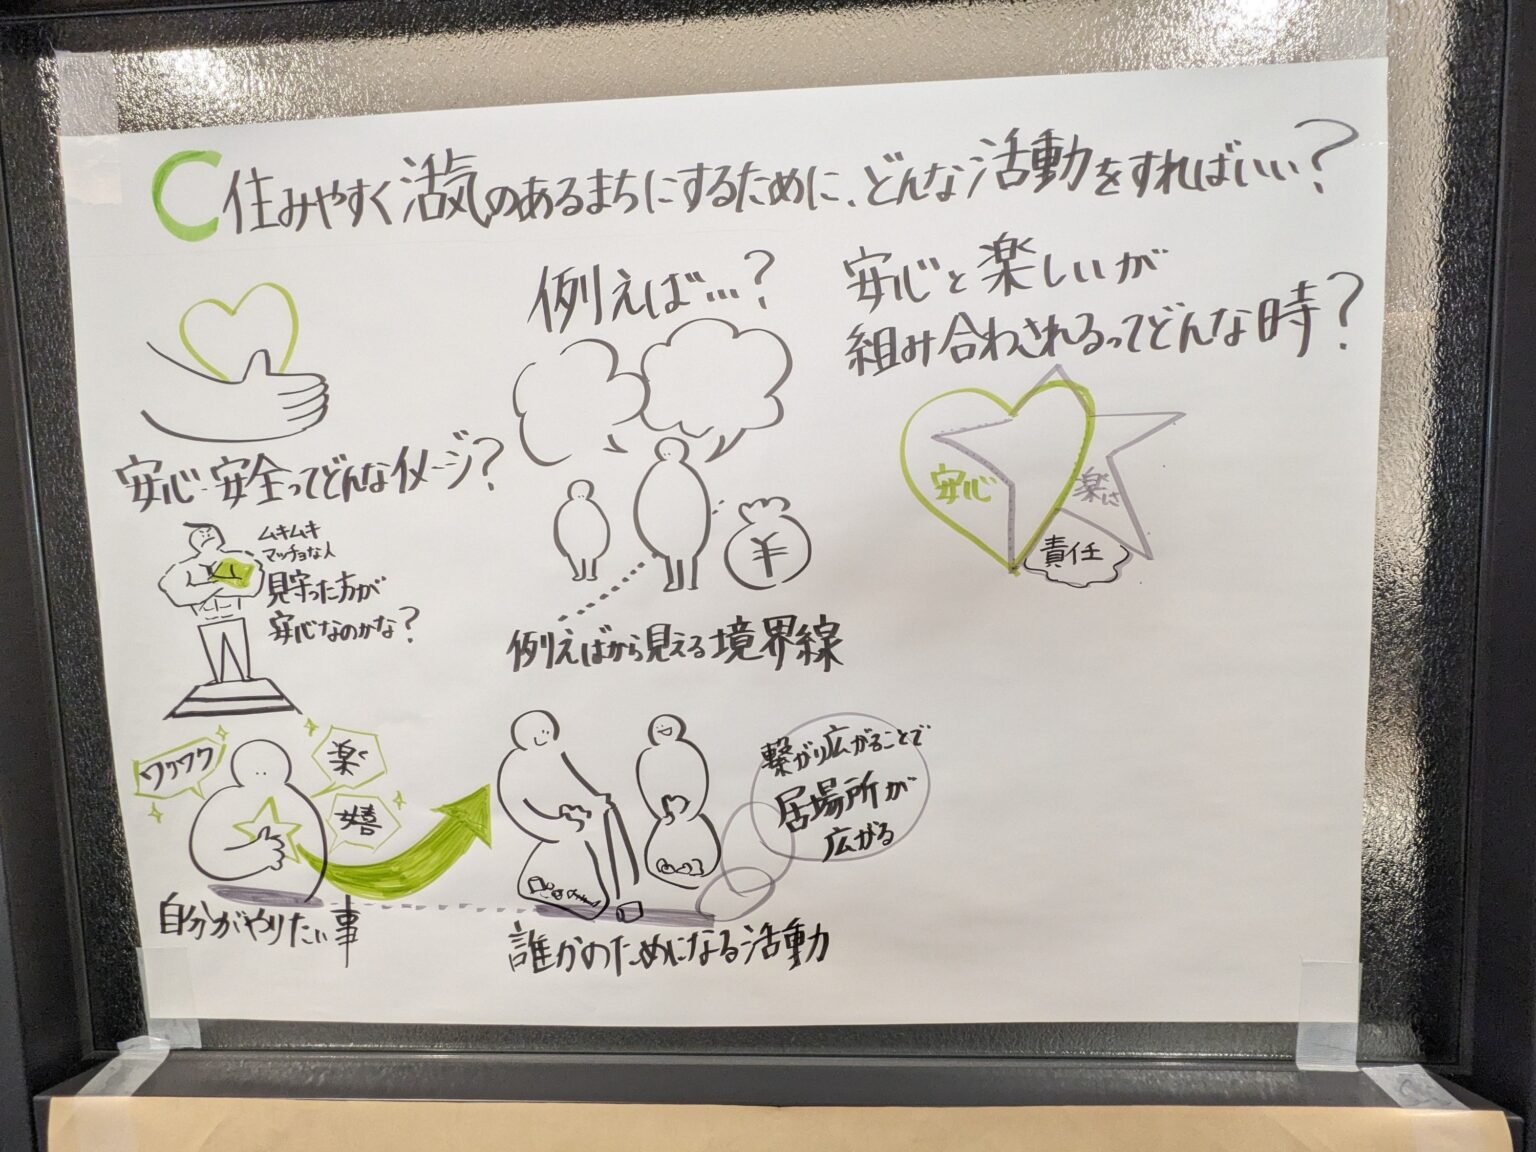 C 住みやすく活気のあるまちにするために、どんな活動をすればいい?
安心・安全ってどんなイメージ?
ムキムキ
マッチョな人
見守った方が
安心なのかな?
例えば…?
¥
例えばから見える境界線
安心と楽しいが
組み合わされるってどんな時?
安心
楽しさ
責任
ワクワク
楽
嬉
自分がやりたい事
誰かのためになる活動
繋がり広がることで
居場所が
広がる